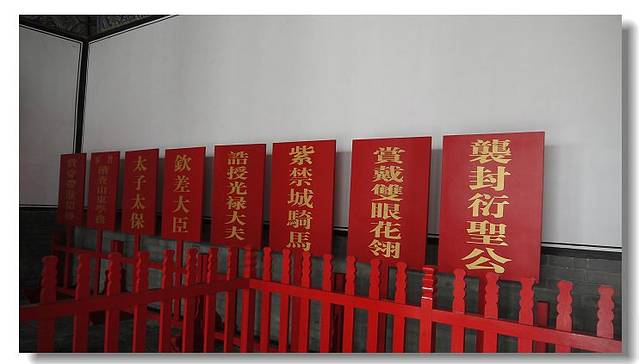 襲封衍聖公
賞戴雙眼花翎
紫禁城騎馬
誥授光禄大夫
欽差大臣
太子太保
稽查山東學務